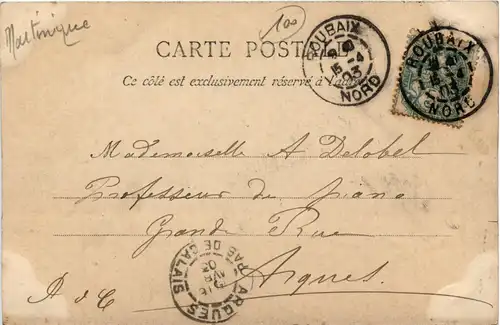 Martinique
100
CARTE POSTALE
Ce côté est exclusivement réservé à l'adresse
ROUBAIX
15 -4
03
NORD
ROUBAIX
15 -4
03
NORD
Mademoiselle A Delobel
Professeur de piano
Grande Rue
Arques
P. de C
ARQUES
PAS DE CALAIS
AVR
03